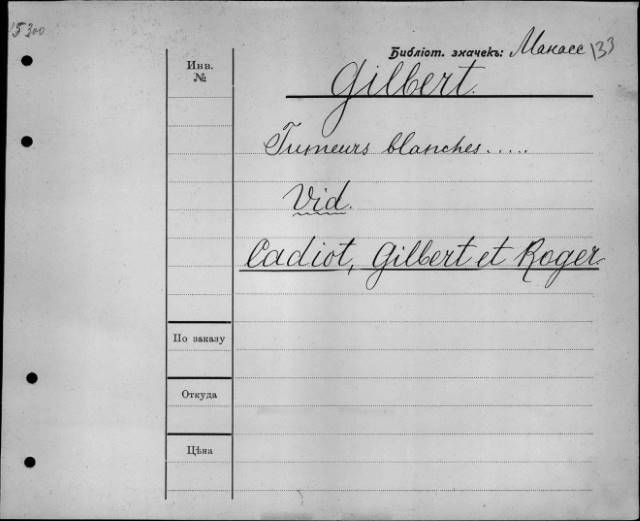 15300
Библіот. значекъ: Манасс 133
Инв.
№
Gilbert.
Tumeurs blanches.....
Vid.
Cadiot, Gilbert et Roger
По заказу
Откуда
Цѣна